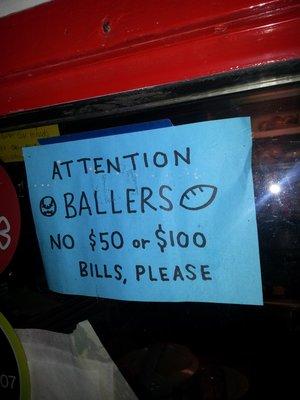 ATTENTION
BALLERS
NO $50 or $100
BILLS, PLEASE
07